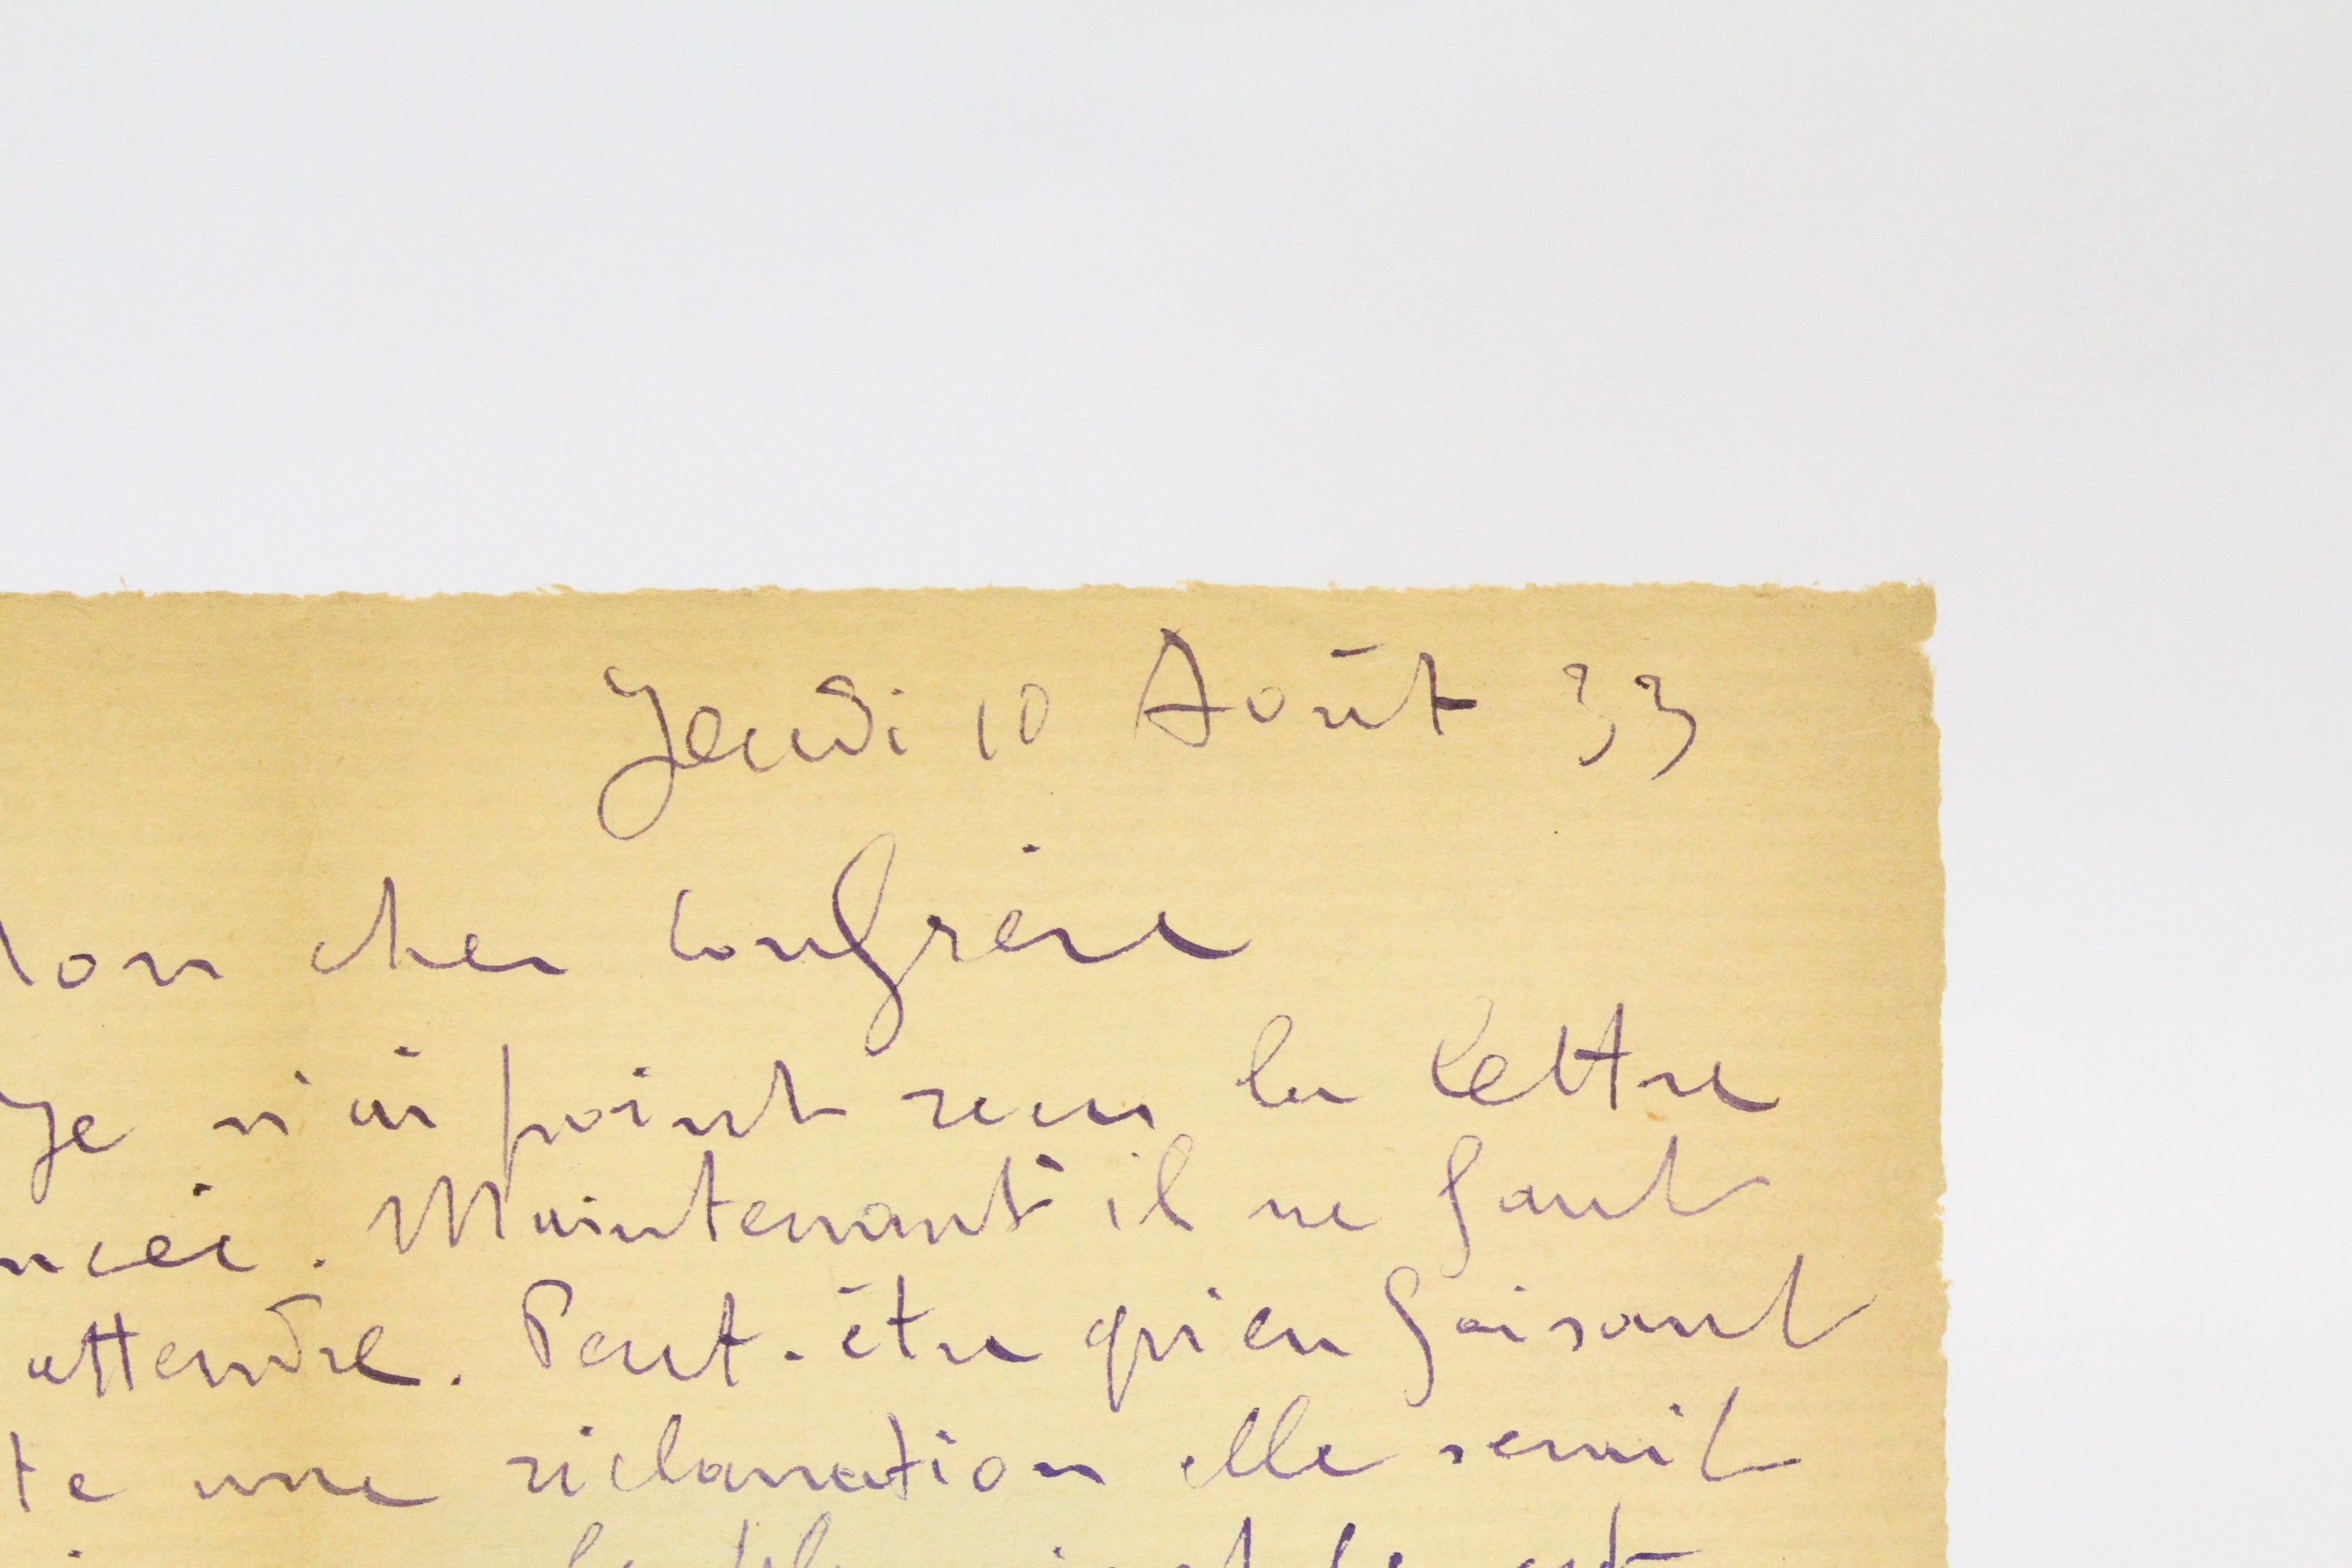 Jeudi 10 Août 33
Mon cher Confrère
Je n'ai point reçu la lettre
ncée. Maintenant il ne faut
attendre. Peut-être qu'en faisant
te une réclamation elle serait